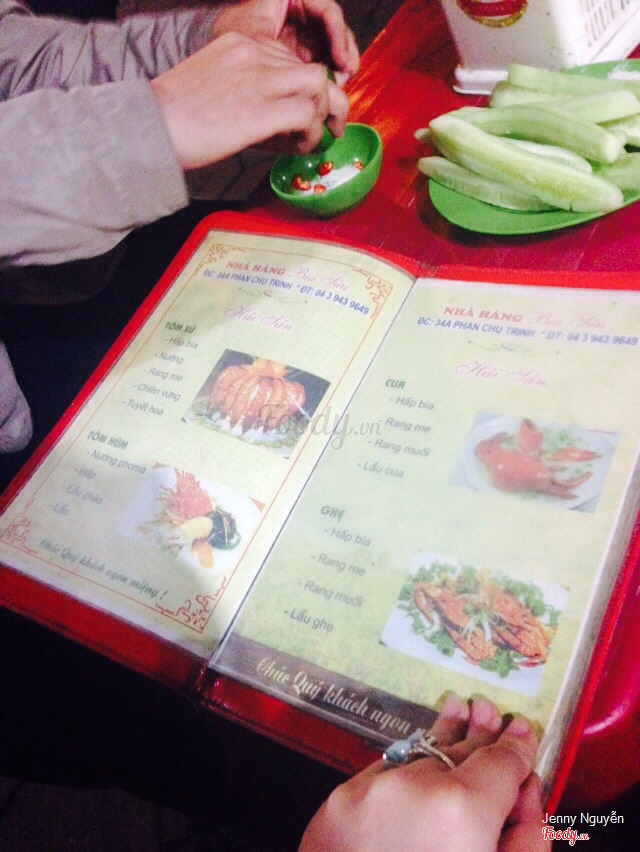 NHÀ HÀNG
ĐC: 34A PHAN CHU TRINH * ĐT: 04 3 943 9649
Hải Sản
TÔM SÚ
- Hấp bia
- Nướng
- Rang me
- Chiên vừng
- Tuyết hoa
TÔM HÙM
- Nướng phomai
- Hấp
- Lẩu cháo
- Lẩu
Chúc Quý khách ngon miệng !
NHÀ HÀNG
ĐC: 34A PHAN CHU TRINH * ĐT: 04 3 943 9649
Hải Sản
CUA
- Hấp bia
- Rang me
- Rang muối
- Lẩu cua
GHẸ
- Hấp bia
- Rang me
- Rang muối
- Lẩu ghẹ
Chúc Quý khách ngon
Foody.vn
Jenny Nguyễn
Foody.vn